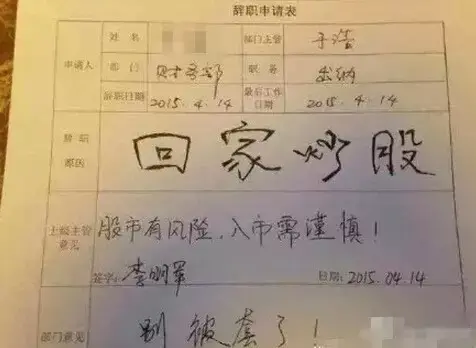 辞职申请表
申请人 姓名 部门主管 于浩
部门 财务部 职务 出纳
辞职日期 2015.4.14 最后工作日期 2015.4.14
辞职原因 回家炒股
上级主管意见 股市有风险,入市需谨慎!
签字: 李明军 日期: 2015.04.14
部门意见 别被套了!